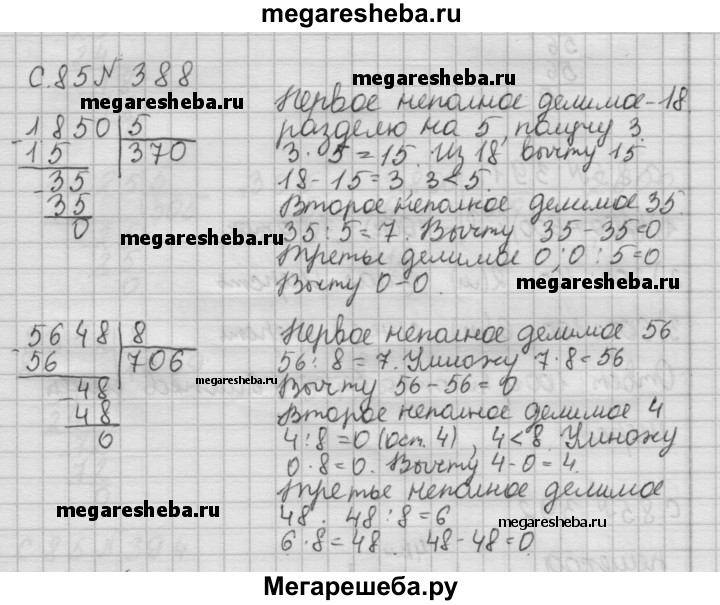 megaresheba.ru
С.85 № 388
megaresheba.ru
megaresheba.ru
1850 5
15 370
35
35
0
Первое неполное делимое - 18
разделю на 5, получу 3.
3 · 5 = 15. Из 18 вычту 15
18 - 15 = 3, 3 < 5.
Второе неполное делимое 35.
35 : 5 = 7. Вычту 35 - 35 = 0
Третье делимое 0, 0 : 5 = 0
Вычту 0 - 0.
megaresheba.ru
megaresheba.ru
5648 8
56 706
48
48
0
Первое неполное делимое 56
56 : 8 = 7. Умножу 7 · 8 = 56
Вычту 56 - 56 = 0
Второе неполное делимое 4
4 : 8 = 0 (ост. 4), 4 < 8. Умножу
0 · 8 = 0. Вычту 4 - 0 = 4.
Третье неполное делимое
48. 48 : 8 = 6
6 · 8 = 48. 48 - 48 = 0
megaresheba.ru
megaresheba.ru
megaresheba.ru
Мегарешеба.ру